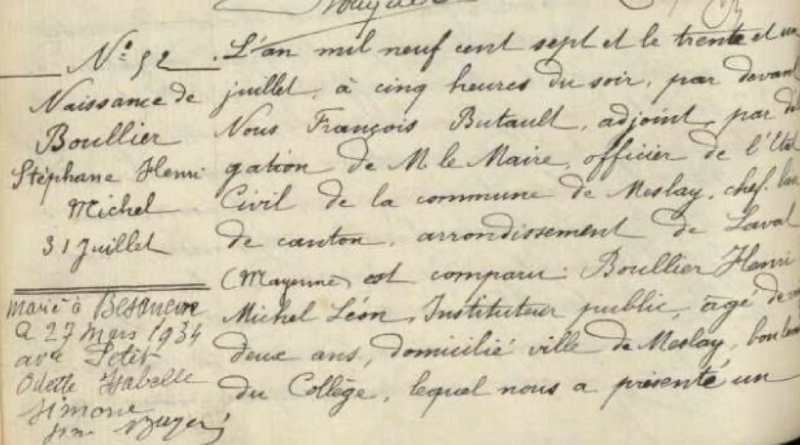 N° 52
Naissance de
Boullier
Stéphane Henri
Michel
31 Juillet
marié à Besançon
27 mars 1934
avec Petit
Odette Isabelle
Simone
L'an mil neuf cent sept et le trente et un
juillet, à cinq heures du soir, par devant
Nous François Butault, adjoint, par
gation de M. le Maire, officier de l'Etat
Civil de la commune de Meslay, chef-lieu
de canton, arrondissement de Laval
(Mayenne) est comparu : Boullier Henri
Michel Léon, Instituteur public, âgé de
deux ans, domicilié ville de Meslay,
du Collège, lequel nous a présenté un